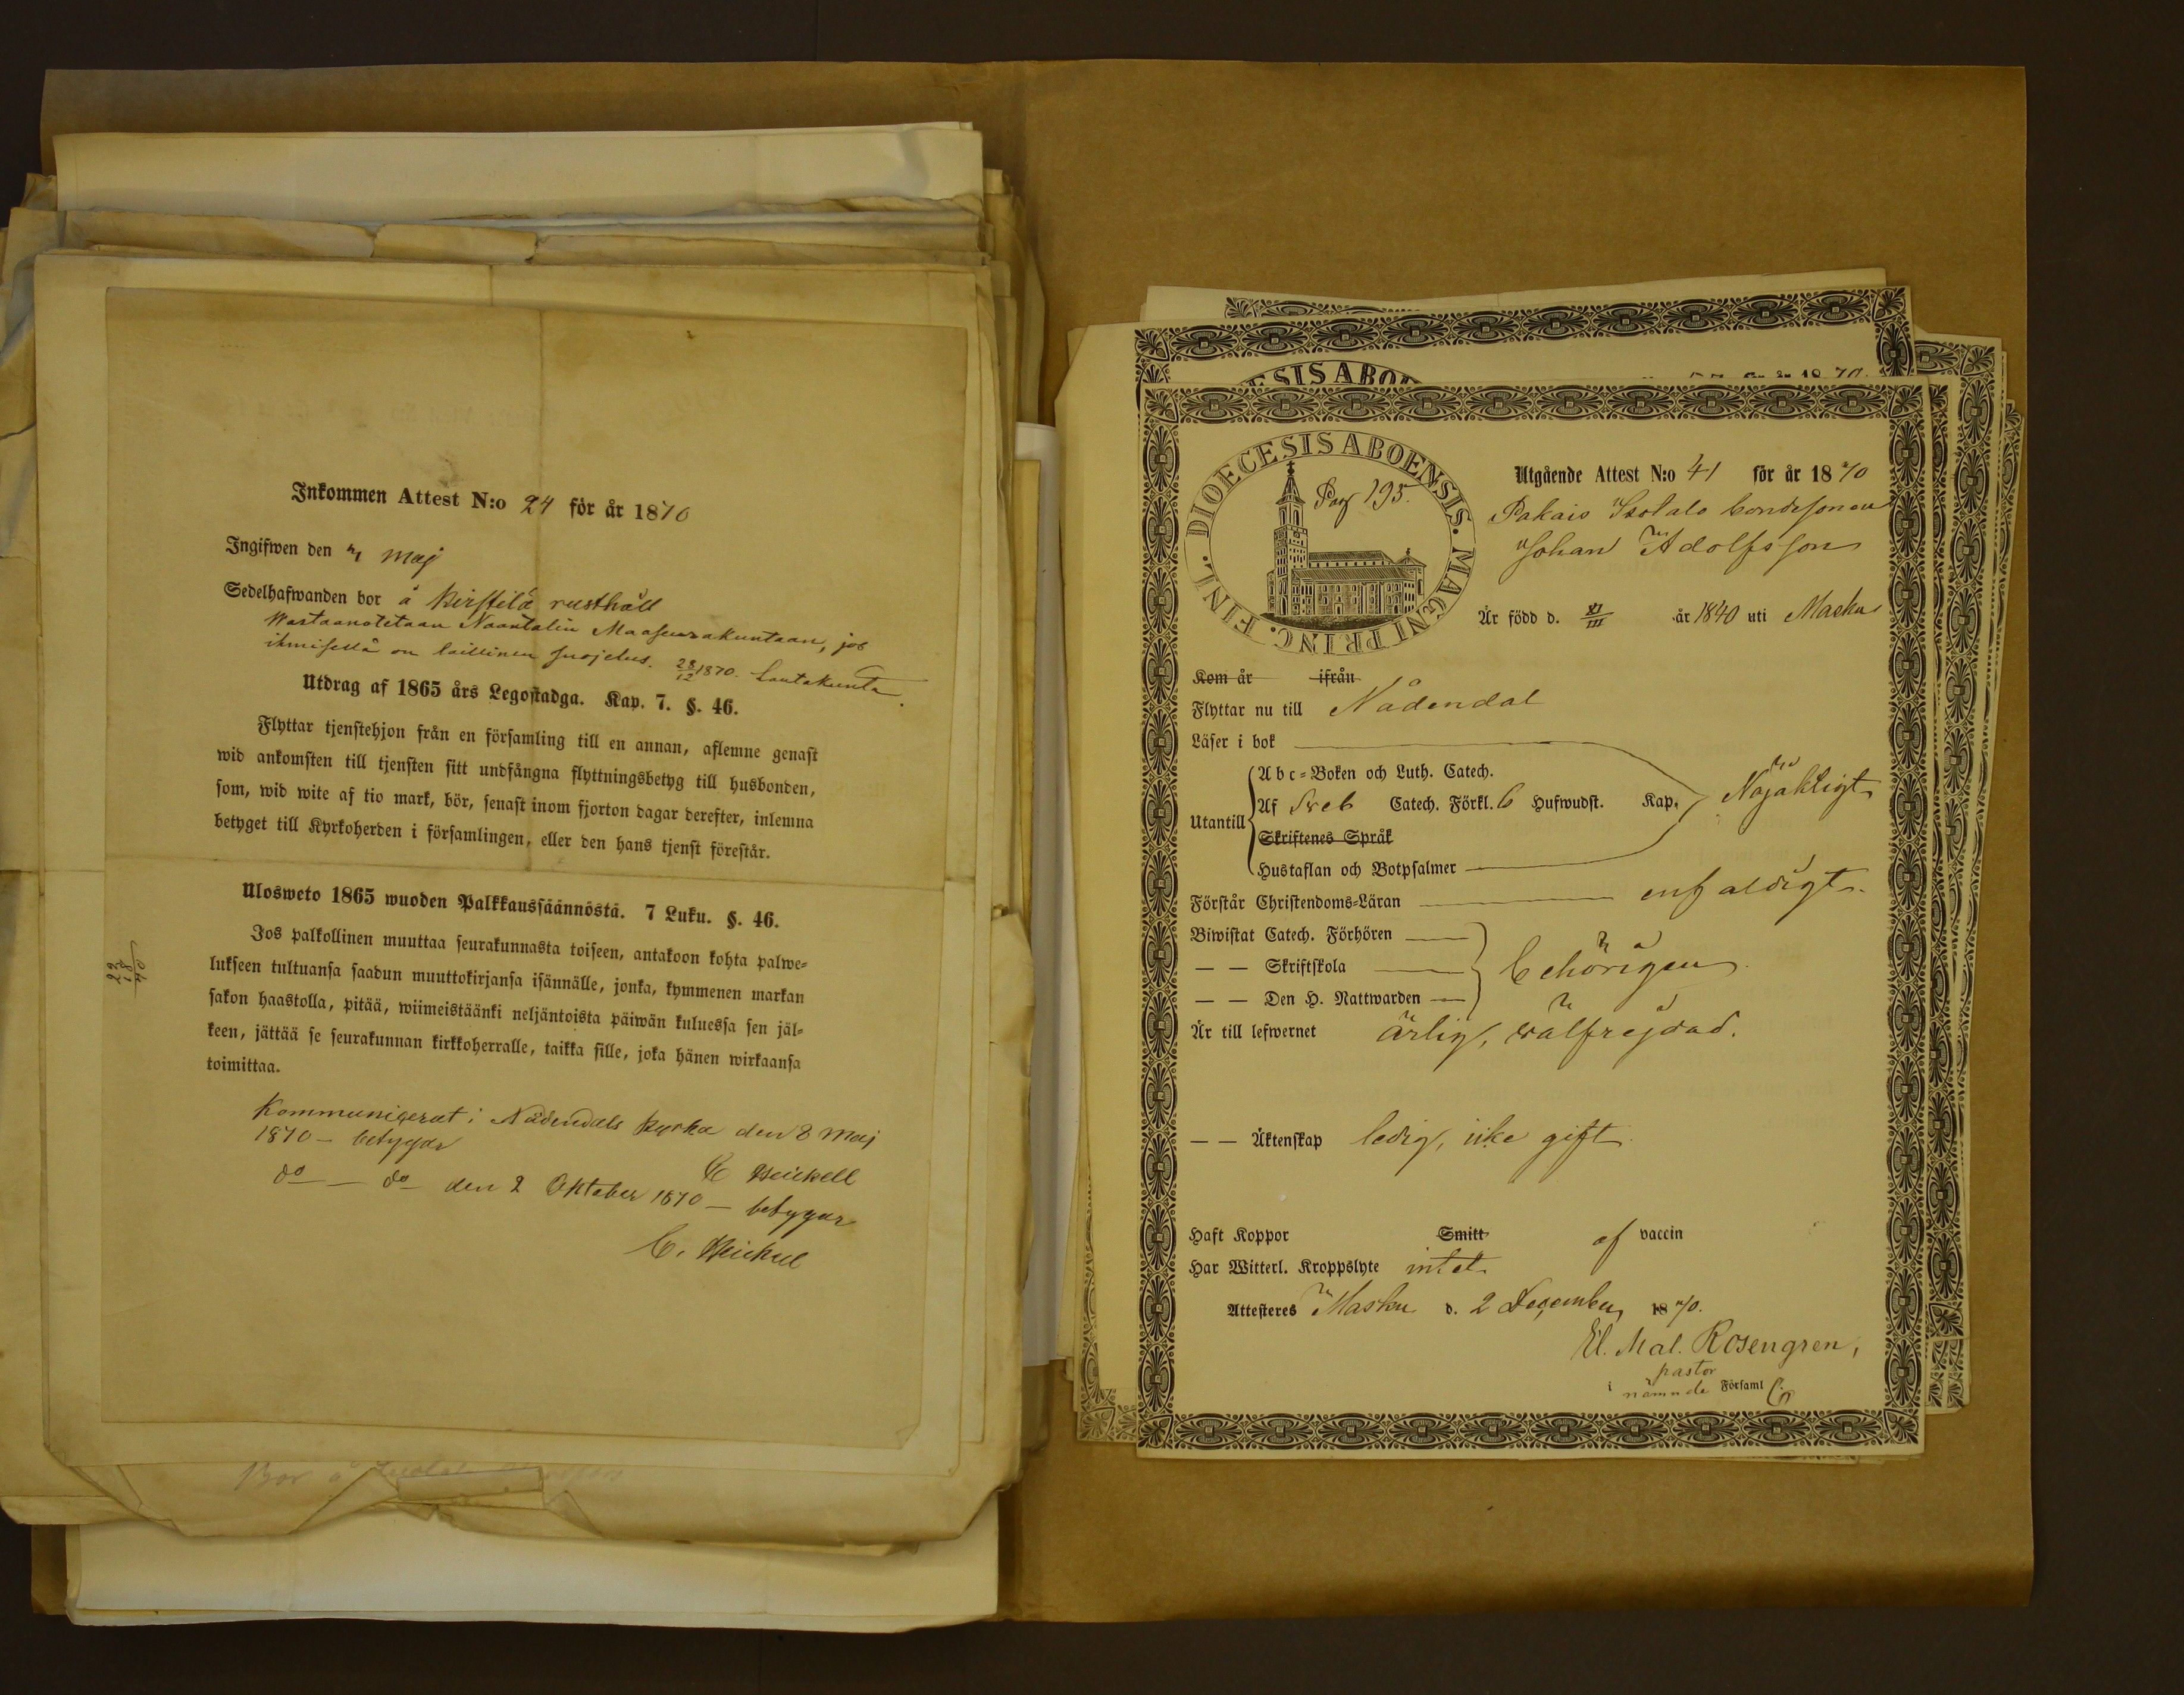 Inkommen Attest N:o 24 för år 1870
Ingifwen den Maj
Sedelhafwanden bor å Kirstilä rusthåll
Wastaanotetaan Naantalin Maaseurakuntaan, jos
ihmisellä on laillinen suojelus. 28/12 1870. Lautakunta.
Utdrag af 1865 års Legostadga. Kap. 7. §. 46.
Flyttar tjenstehjon från en församling till en annan, aflemne genast
wid ankomsten till tjensten sitt undfångna flyttningsbetyg till husbonden,
som, wid wite af tio mark, bör, senast inom fjorton dagar derefter, inlemna
betyget till Kyrkoherden i församlingen, eller den hans tjenst förestår.
Ulosweto 1865 wuoden Palkkaussäännöstä. 7 Luku. §. 46.
Jos palkollinen muuttaa seurakunnasta toiseen, antakoon kohta palwe=
lukseen tultuansa saadun muuttokirjansa isännälle, jonka, kymmenen markan
sakon haastolla, pitää, wiimeistäänki neljäntoista päiwän kuluessa sen jäl=
keen, jättää se seurakunnan kirkkoherralle, taikka sille, joka hänen wirkaansa
toimittaa.
Kommunicerat i Nådendals Kyrka den 8 Maj
1870 – betygar
C Heickell
do – do den 2 Oktober 1870 – betygar
C. Heickell
Bor å
ESIS ABOE
för år 1870.
DIOECESIS ABOENSIS. MAGNI PRINC. FINL.
Pag 195.
Utgående Attest N:o 41 för år 1870
Pakais Isotalo bondesonen
Johan Adolfsson
Är född d. XI/III år 1840 uti Masku
Kom år ifrån
Flyttar nu till Nådendal
Läser i bok
Utantill
Abc=Boken och Luth. Catech.
Af Sveb Catech. Förkl. 6 Hufwudst. Kap.
Nöjaktigt
Skriftenes Språk
Hustaflan och Botpsalmer
Förstår Christendoms=Läran enfaldigt.
Biwistat Catech. Förhören
— — Skriftskola
behörigen
— — Den H. Nattwarden
Är till lefwernet ärlig, välfrejdad.
— — Äktenskap ledig, icke gift
Haft Koppor Smitt af vaccin
Har Witterl. Kroppslyte intet
Attesteres Masku d. 2 December 1870.
El. Mal. Rosengren,
pastor
i nämnde Församl